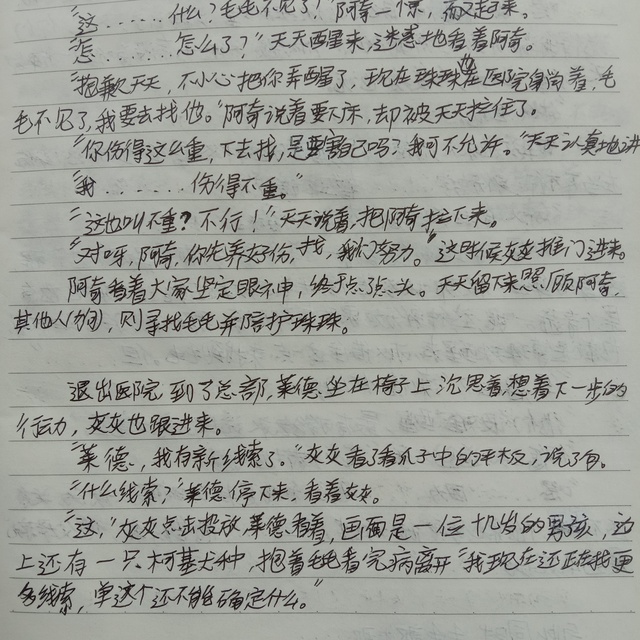 “这……什么？毛毛不见了！”阿奇一惊，而又起来。
“怎……怎么了？”天天醒来，迷惑地看着阿奇。
“抱歉天天，不小心把你弄醒了，现在珠珠也在医院身尚着，毛
毛不见了，我要去找他。”阿奇说着要下床，却被天天拉住了。
“你伤得这么重，下去找，是要害自己吗？我可不允许。”天天认真地讲
“我……伤得不重。”
“这也叫不重？不行！”天天说着，把阿奇拉下来。
“对呀，阿奇，你先养好伤，找，我们努力。”这时候灰灰推门进来。
阿奇看着大家坚定眼神，终于点点头。天天留下来照顾阿奇，
其他人(狗)，则寻找毛毛并陪护珠珠。
退出医院，到了总部，莱德坐在椅子上沉思着，想着下一步的
行动，灰灰也跟进来。
“莱德，我有新线索了。”灰灰看了看爪子中的平板，说了句。
“什么线索？”莱德停下来，看着灰灰。
“这，”灰灰点击投放，莱德看着，画面是一位十几岁的男孩，边
上还有一只柯基犬种，抱着毛毛看完病离开“我现在还正在找更
多线索，单这个还不能确定什么。”